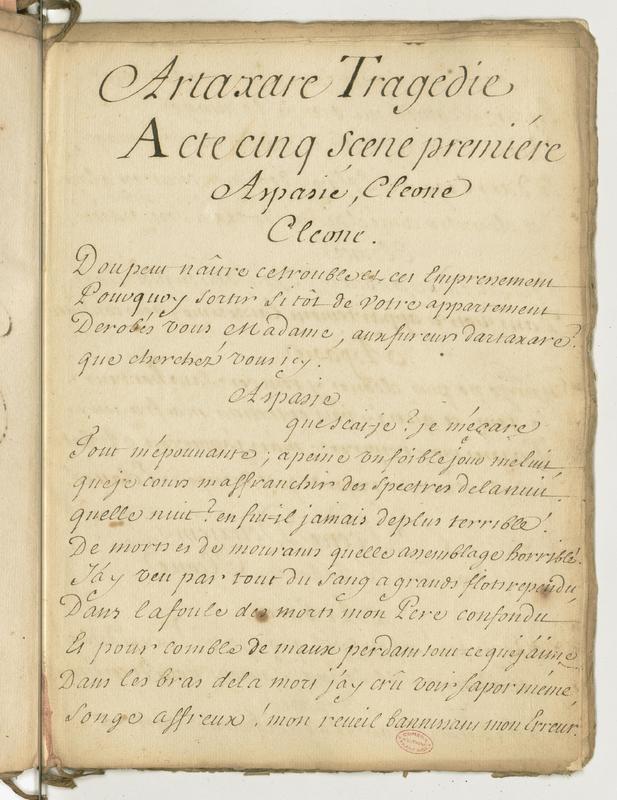 Artaxare Tragedie
Acte cinq scene premiére
Aspasie, Cleone
Cleone.
Doupeut naître cetrouble et cet Empressement
Pourquoy sortir si tôt de votre appartement
Derobés vous Madame, aux fureurs dartaxare?
que cherchez vous icy.
Aspasie
que scai-je? je mégare
Tout mépouvante; apeine un foible jour me luit
que je cours m'affranchir des spectres de la nuit
quelle nuit? en fut-il jamais de plus terrible!
De morts et de mourans quelle assemblage horrible!
J'ay veu par tout du sang a grands flots rependu,
Dans la foule des morts mon Pere confondu
Et pour comble de maux perdant tout ce que j'aime
Dans les bras de la mort j'ay crû voir sapor méme
Songe affreux! mon reveil bannissant mon Erreur.